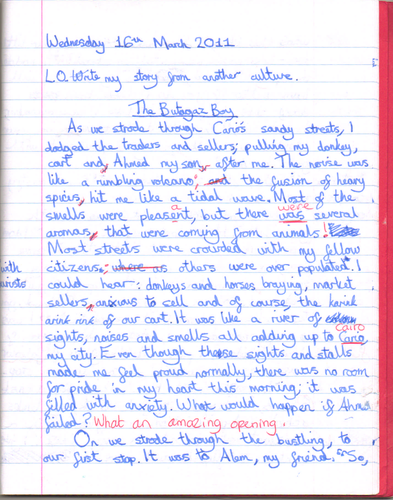 Wednesday 16th March 2011
L.O. Write my story from another culture.
The Butagaz Boy
As we strode through Cario's sandy streets, I
dodged the traders and sellers; pulling my donkey,
cart and, Ahmed my son, after me. The noise was
like a rumbling volcano, and the fusion of heavy
spices, hit me like a tidal wave. Most of the
a were
smells were pleasent, but there was several
aromas, that were coming from animals!
Most streets were crowded with my fellow
with citizens, where as others were over populated. I
tourists could hear: donkeys and horses braying, market
sellers, anxious to sell and of course, the
arink rink of our cart. It was like a river of
sights, noises and smells all adding up to Cario, cairo
my city. Even though these sights and stalls
made me feel proud normally, there was no room
for pride in my heart this morning; it was
filled with anxiety. What would happen if Ahmed
failed? What an amazing opening.
On we strode through the bustling, to
our first stop. It was to Alem, my friend. "So,